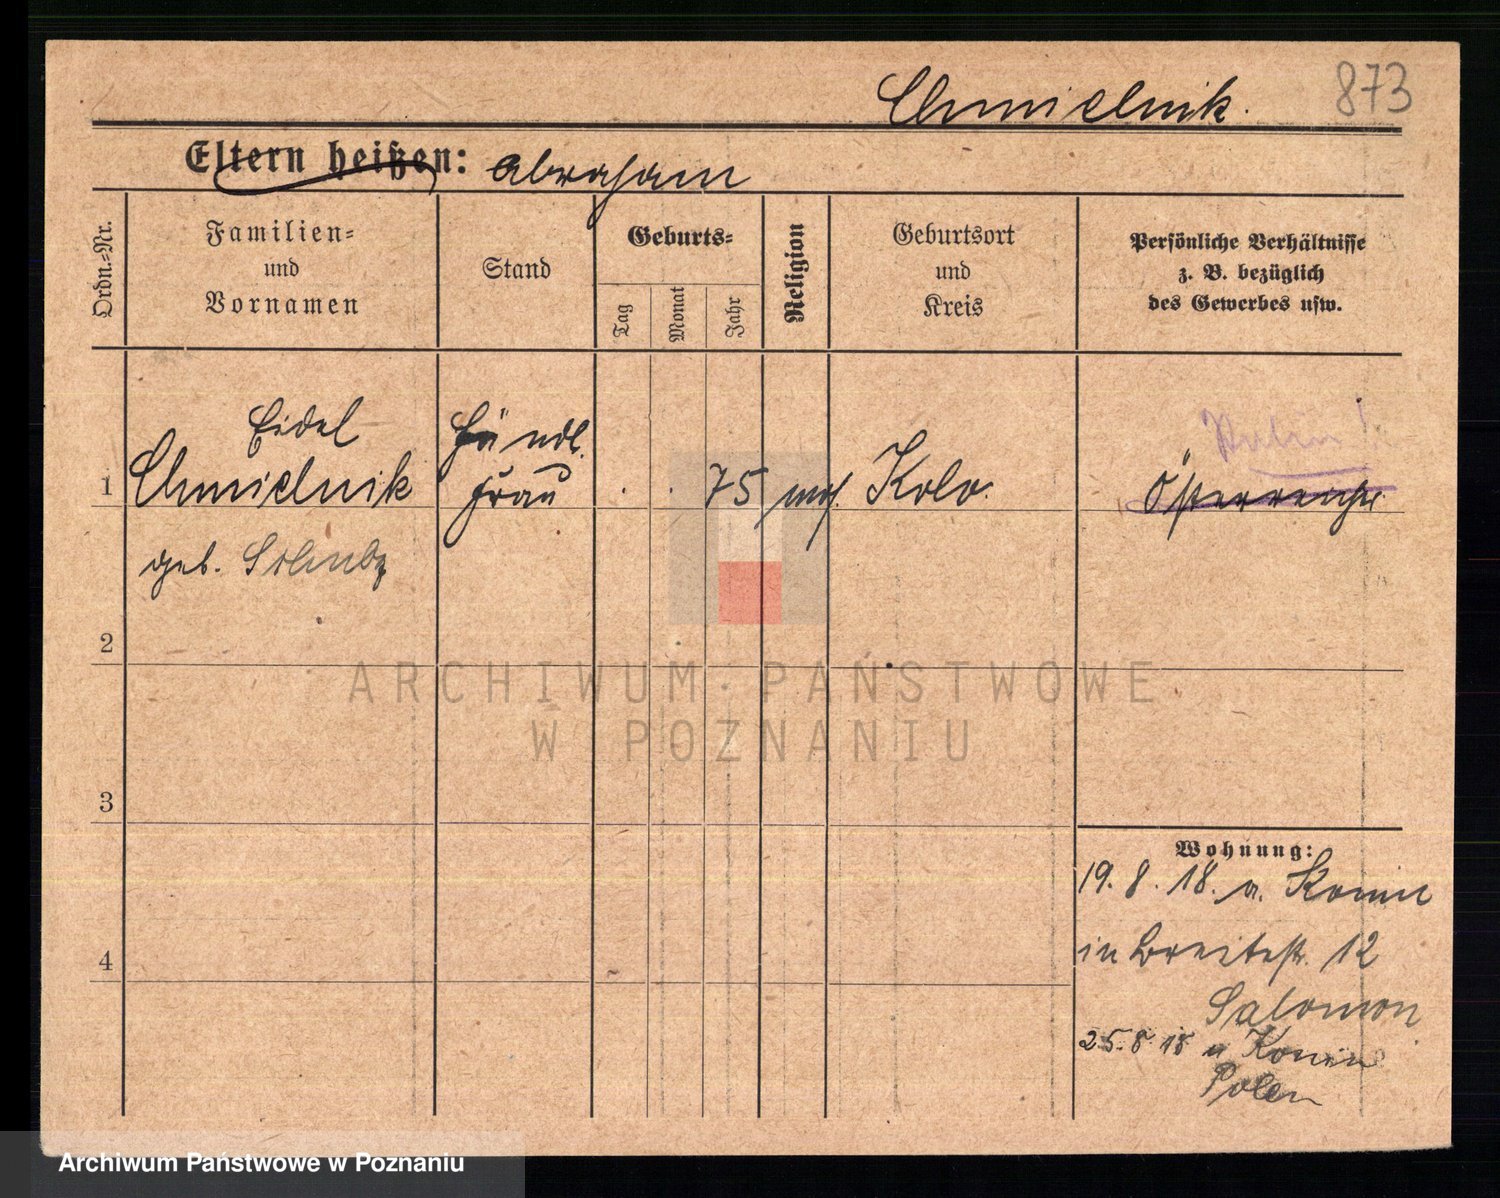 Chmielnik. 873
Eltern heißen: Abraham
Ordn.-Nr.
Familien-
und
Vornamen
Stand
Geburts-
Tag
Monat
Jahr
Religion
Geburtsort
und
Kreis
Persönliche Verhältnisse
z. B. bezüglich
des Gewerbes usw.
Eidel
1 Chmielnik
Händl.
frau
75 mos. Kolo.
Polin!
Österreich
geb.
2
3
4
Wohnung:
19. 8. 18. v. Konin
in Breitestr. 12
Salomon
25. 8. 18 n Konin
Polen
ARCHIWUM PAŃSTWOWE
W POZNANIU
Archiwum Państwowe w Poznaniu